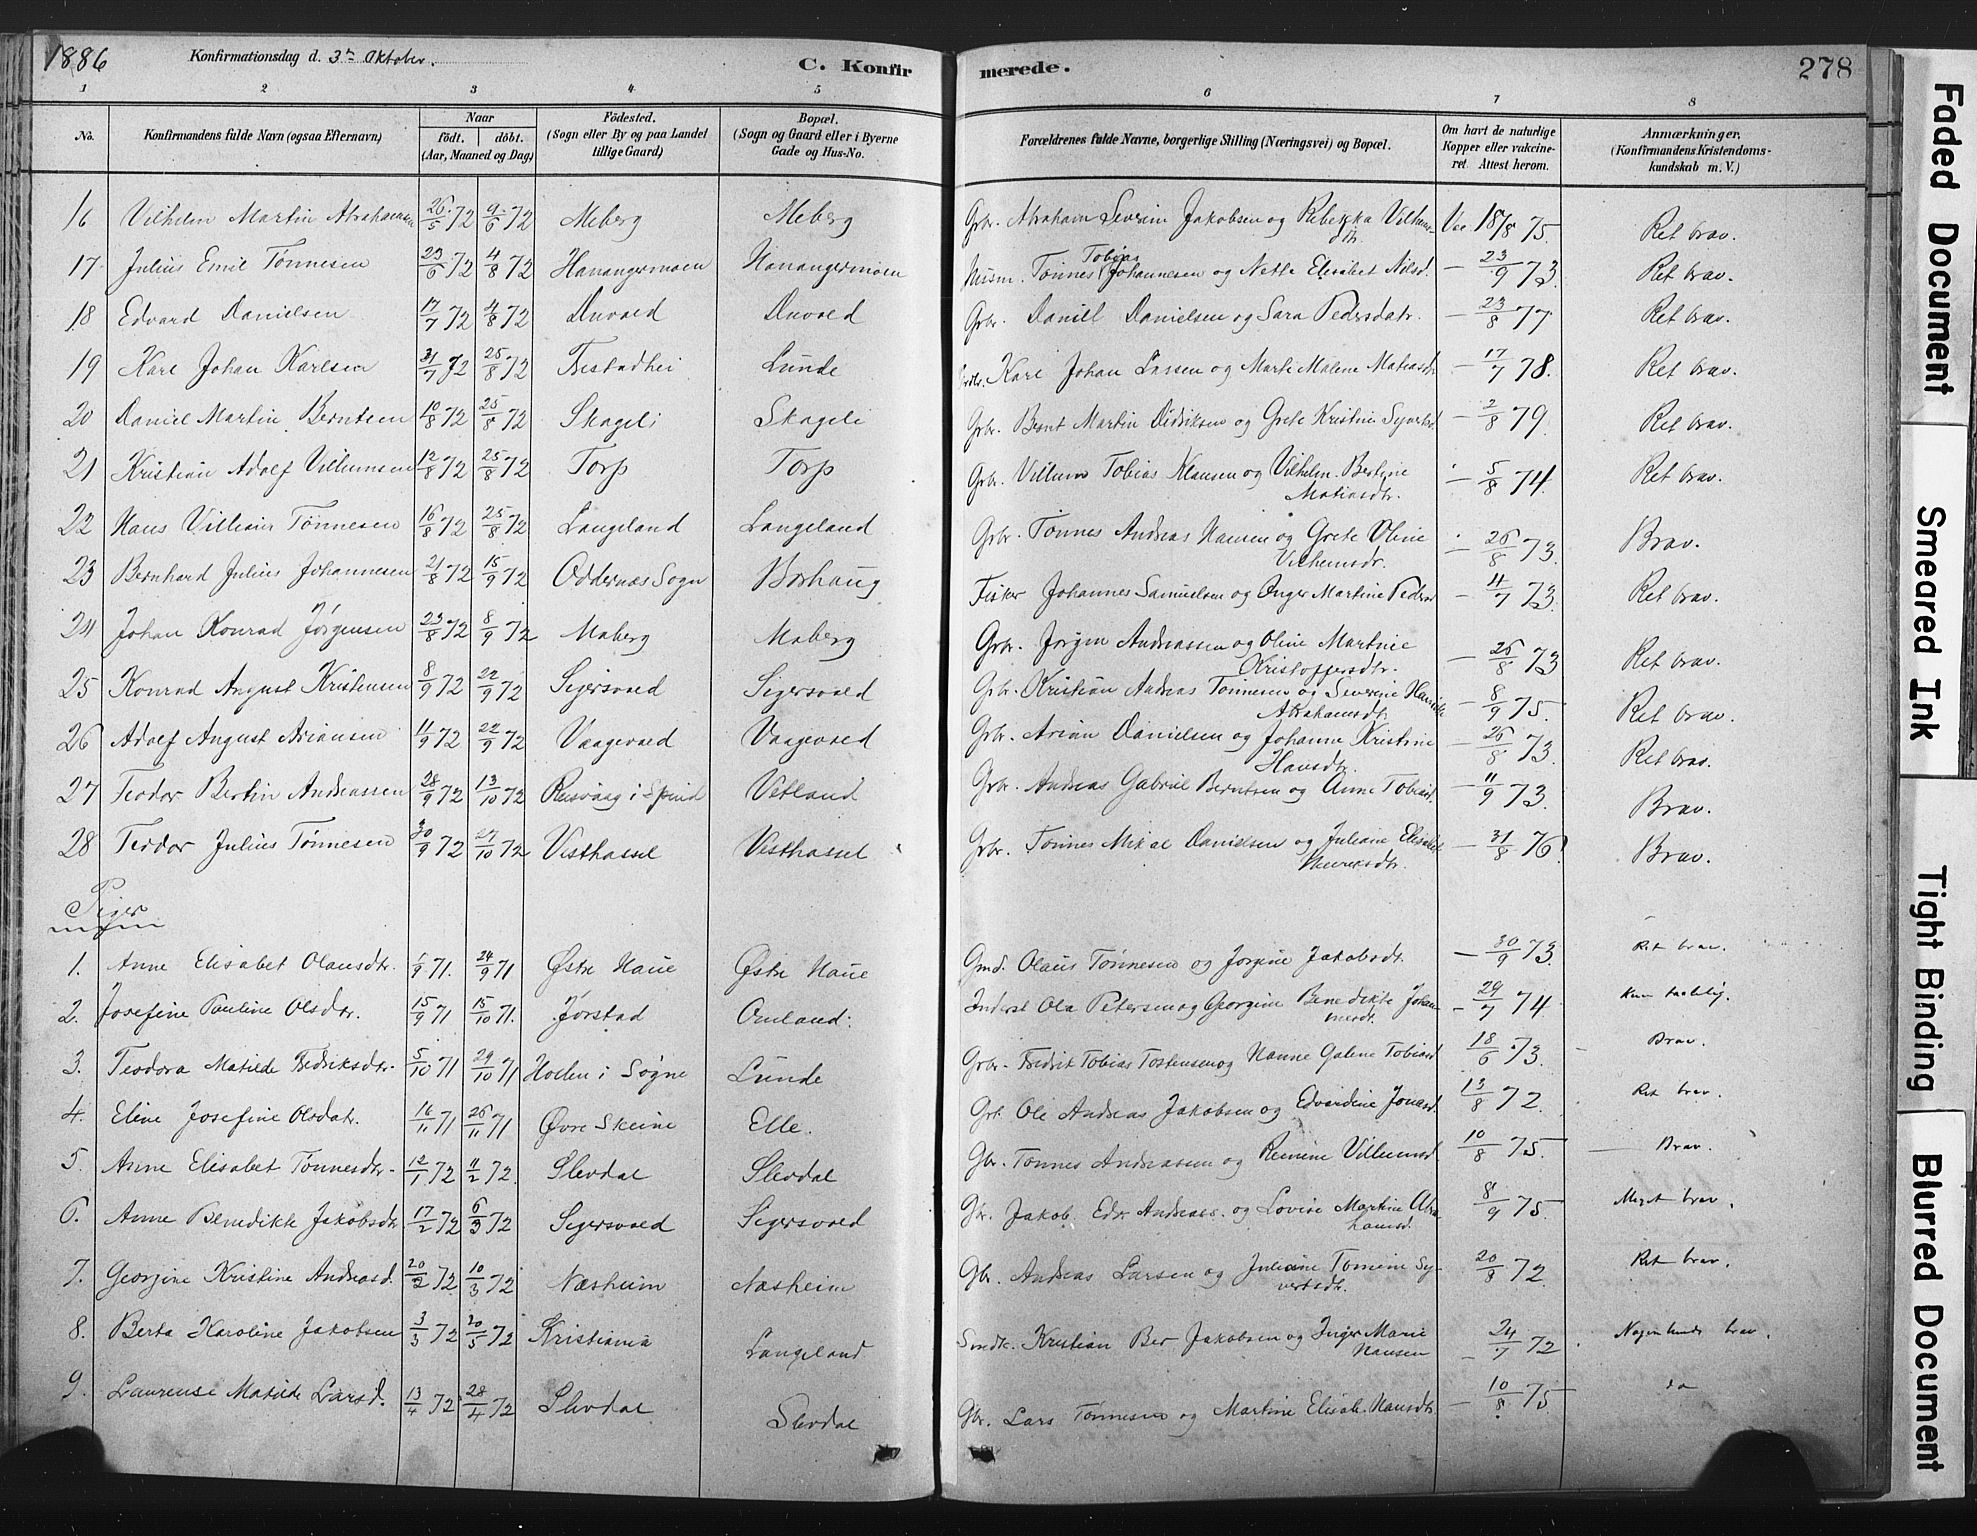 1886 Konfirmationsdag d. 3die Oktober. C. Konfirmerede. 278
1 2 3 4 5 6 7 8
No. Konfirmandens fulde Navn (ogsaa Efternavn) Naar födt. döbt. (Aar, Maaned og Dag) Födested. (Sogn eller By og paa Landet tillige Gaard) Bopæl. (Sogn og Gaard eller i Byerne Gade og Hus-No. Forældrenes fulde Navne, borgerlige Stilling (Næringsvei) og Bopæl. Om havt de naturlige Kopper eller vakcineret. Attest herom. Anmærkninger. (Konfirmandens Kristendomskundskab m. V.)
16 Vilhelm Martin Abrahamsen 26/5 72 9/6 72 Meberg Meberg Grbr. Abraham Severin Jakobsen og Rebekka Vilhelmsdtr. Vac. 18/8 75. Ret brav.
17 Julius Emil Tønnesen 23/6 72 4/8 72 Hanangermoen Hanangermoen Husm. Tønnes Tobias Johannesen og Nette Elisabet Nilsd. — 23/9 73. Ret brav.
18 Edvard Danielsen 17/7 72 4/8 72 Duvold Duvold Grbr. Daniel Danielsen og Sara Pedersdatr. — 23/8 77 Ret brav.
19 Karl Johan Karlsen 31/7 72 25/8 72 Tjestadhei Lunde Karl Johan Larsen og Marte Malene Matiasdtr — 17/7 78. Ret brav.
20 Daniel Martin Berntsen 10/8 72 25/8 72 Skageli Skageli Grbr. Bernt Martin Didriksen og Grete Kristine Syvertsd. — 2/8 79. Ret brav.
21 Kristian Adolf Villumsen 12/8 72 25/8 72 Torp Torp Grbr. Villum Tobias Klausen og Vilhelm. Bertine Matiasdtr. — 5/8 74. Ret brav.
22 Hans Villiam Tønnesen 16/8 72 25/8 72 Langeland Langeland Grbr. Tønnes Andreas Hansen og Grete Oline Vilhemsdr. — 26/8 73. Brav.
23 Bernhard Julius Johannesen 21/8 72 15/9 72 Oddernæs Sogn Borhaug Fisker Johannes Samuelsen og Inger Martine Pedersd — 4/7 73. Ret brav.
24 Johan Konrad Jørgensen 23/8 72 8/9 72 Maberg Maberg Grbr. Jørgen Andreassen og Oline Martine Kristoffersdtr. — 26/8 73 Ret brav.
25 Konrad August Kristensen 8/9 72 22/9 72 Sigersvold Sigersvold Grbr. Kristian Andreas Tønnesen og Severine Abrahamsdtr. — 8/9 75. Ret brav.
26 Adolf August Ariansen 11/9 72 22/9 72 Vaagevold Vaagevold Grbr. Arian Danielsen og Johanne Kristine Hansdtr. — 26/8 73. Ret brav.
27 Teodor Bertin Andreassen 28/9 72 13/10 72 Røsvaag i Spind Vetland Grbr. Andreas Gabriel Berntsen og Anne Tobiasd. — 11/9 73. Brav.
28 Teodor Julius Tønnesen 30/9 72 27/10 72 Vesthassel Vesthassel Grbr. Tønnes Mikal Danielsen og Juliane Elisabet — 31/8 76. Brav.
Piger
1. Anne Elisabet Olausdtr. 1/9 71. 24/9 71 Østre Haue Østre Haue Gmd. Olaus Tønnesen og Jørgine Jakobsdtr. — 30/9 73. Ret brav.
2. Josefine Pauline Olsdtr. 15/9 71 15/10 71. Jørstad Omland. Inderst Ola Petersen og Georgine Benedikte Johannesdt. — 29/7 74 Kun taalelig.
3. Teodora Matilde Fredriksdtr. 5/10 71 29/10 71 Holen i Søgne Lunde Grbr. Fredrik Tobias Tostensen og Hanne Galene Tobiasd 18/6 73. Brav.
4. Eline Josefine Olsdatr. 16/11 71 26/11 71 Øvre Skeine Elle. Grbr. Ole Andreas Jakobsen og Edvardine Jonasd. 13/8 72. Ret brav.
5. Anne Elisabet Tønnesdtr. 12/1 72 11/2 72. Slevdal Slevdal Gbr. Tønnes Andreassen og Remine Villumsd. 10/8 75. Brav.
6. Anne Benedikte Jakobsdtr 17/2 72 6/3 72 Sigersvold Sigersvold Gbr. Jakob Edv Andreass. og Lovise Martine Abrahamsd. 8/9 75. Meget brav.
7. Georgine Kristine Andreasd. 20/2 72 10/3 72 Næsheim Næsheim Gbr. Andreas Larsen og Juliane Tomine Syvertsdtr. 20/8 72. Ret brav.
8. Berta Karoline Jakobsen 3/3 72 20/5 72 Kristiania Langeland Smdk. Kristian Ber Jakobsen og Inger Marie Hansen — 24/7 72 Nogenlunde brav.
9. Laurense Matilde Larsd. 13/4 72 28/4 72 Slevdal Slevdal Gbr. Lars Tønnesen og Martine Elisab. Hansdtr. — 10/8 75 do
Faded Document
Smeared Ink
Tight Binding
Blurred Document